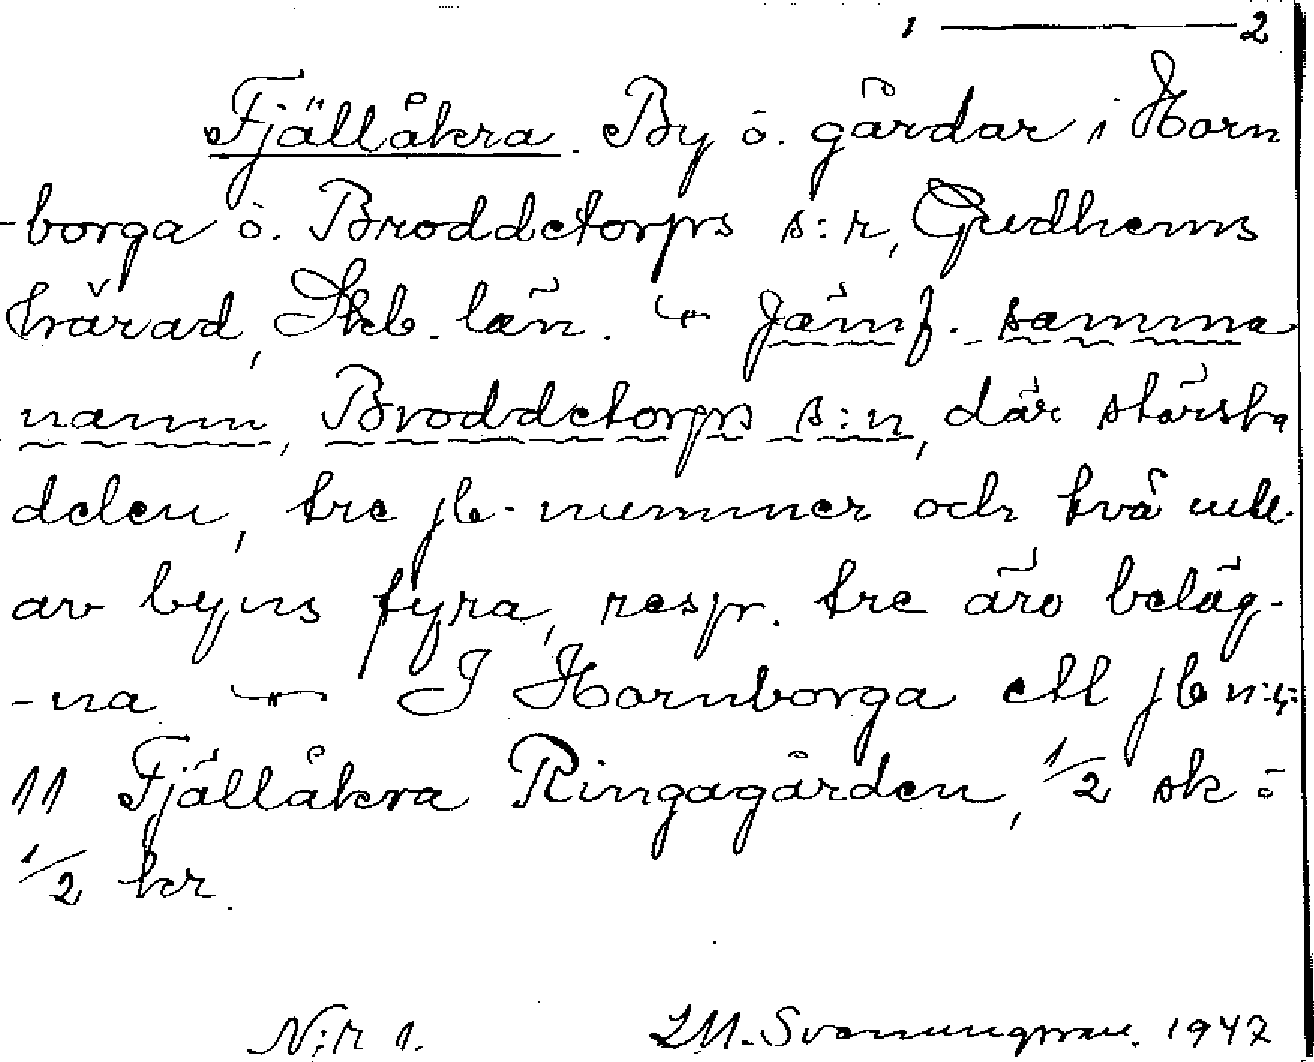 1 ——— 2
Fjällåkra. By o. gårdar i Horn
-borga o. Broddetorps s:r, Gudhems
härad, Skb. län. — Jämf. samma
namn, Broddetorps s:n, där största
delen, tre jb-nummer och två utb.
av byns fyra, resp. tre äro beläg-
-na — I Hornborga ett jb n:r
11 Fjällåkra Ringagården, 1/2 sk o
1/2 kr.
N:r 1. LM. Svanungsson. 1947